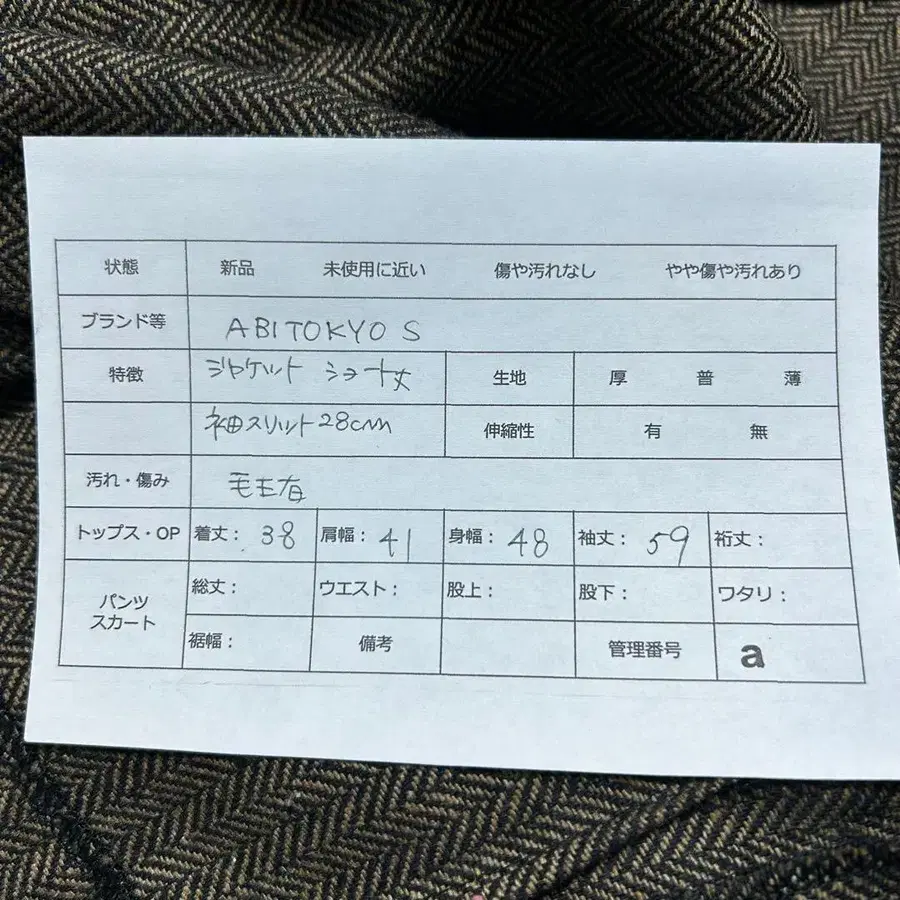 状態 新品 未使用に近い 傷や汚れなし やや傷や汚れあり
ブランド等 ABITOKYO S
特徴 ジャケット ショート丈 生地 厚 普 薄
袖スリット28cm 伸縮性 有 無
汚れ・傷み 毛玉有
トップス・OP 着丈: 38 肩幅: 41 身幅: 48 袖丈: 59 裄丈:
パンツ スカート 総丈: ウエスト: 股上: 股下: ワタリ:
裾幅: 備考 管理番号 a